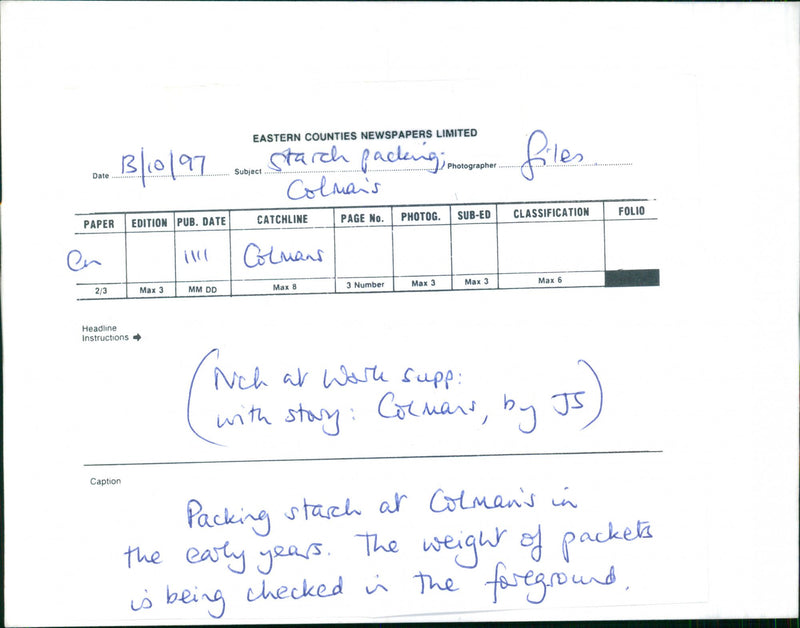 EASTERN COUNTIES NEWSPAPERS LIMITED
Date 13/10/97 Subject Starch packing; Photographer files
Colman's
PAPER EDITION PUB. DATE CATCHLINE PAGE No. PHOTOG. SUB-ED CLASSIFICATION FOLIO
En 1111 Colmans
2/3 Max 3 MM DD Max 8 3 Number Max 3 Max 3 Max 6
Headline
Instructions ➔
(Nch at Work supp:
with story: Colmans, by JS)
Caption
Packing starch at Colman's in
the early years. The weight of packets
is being checked in the foreground.